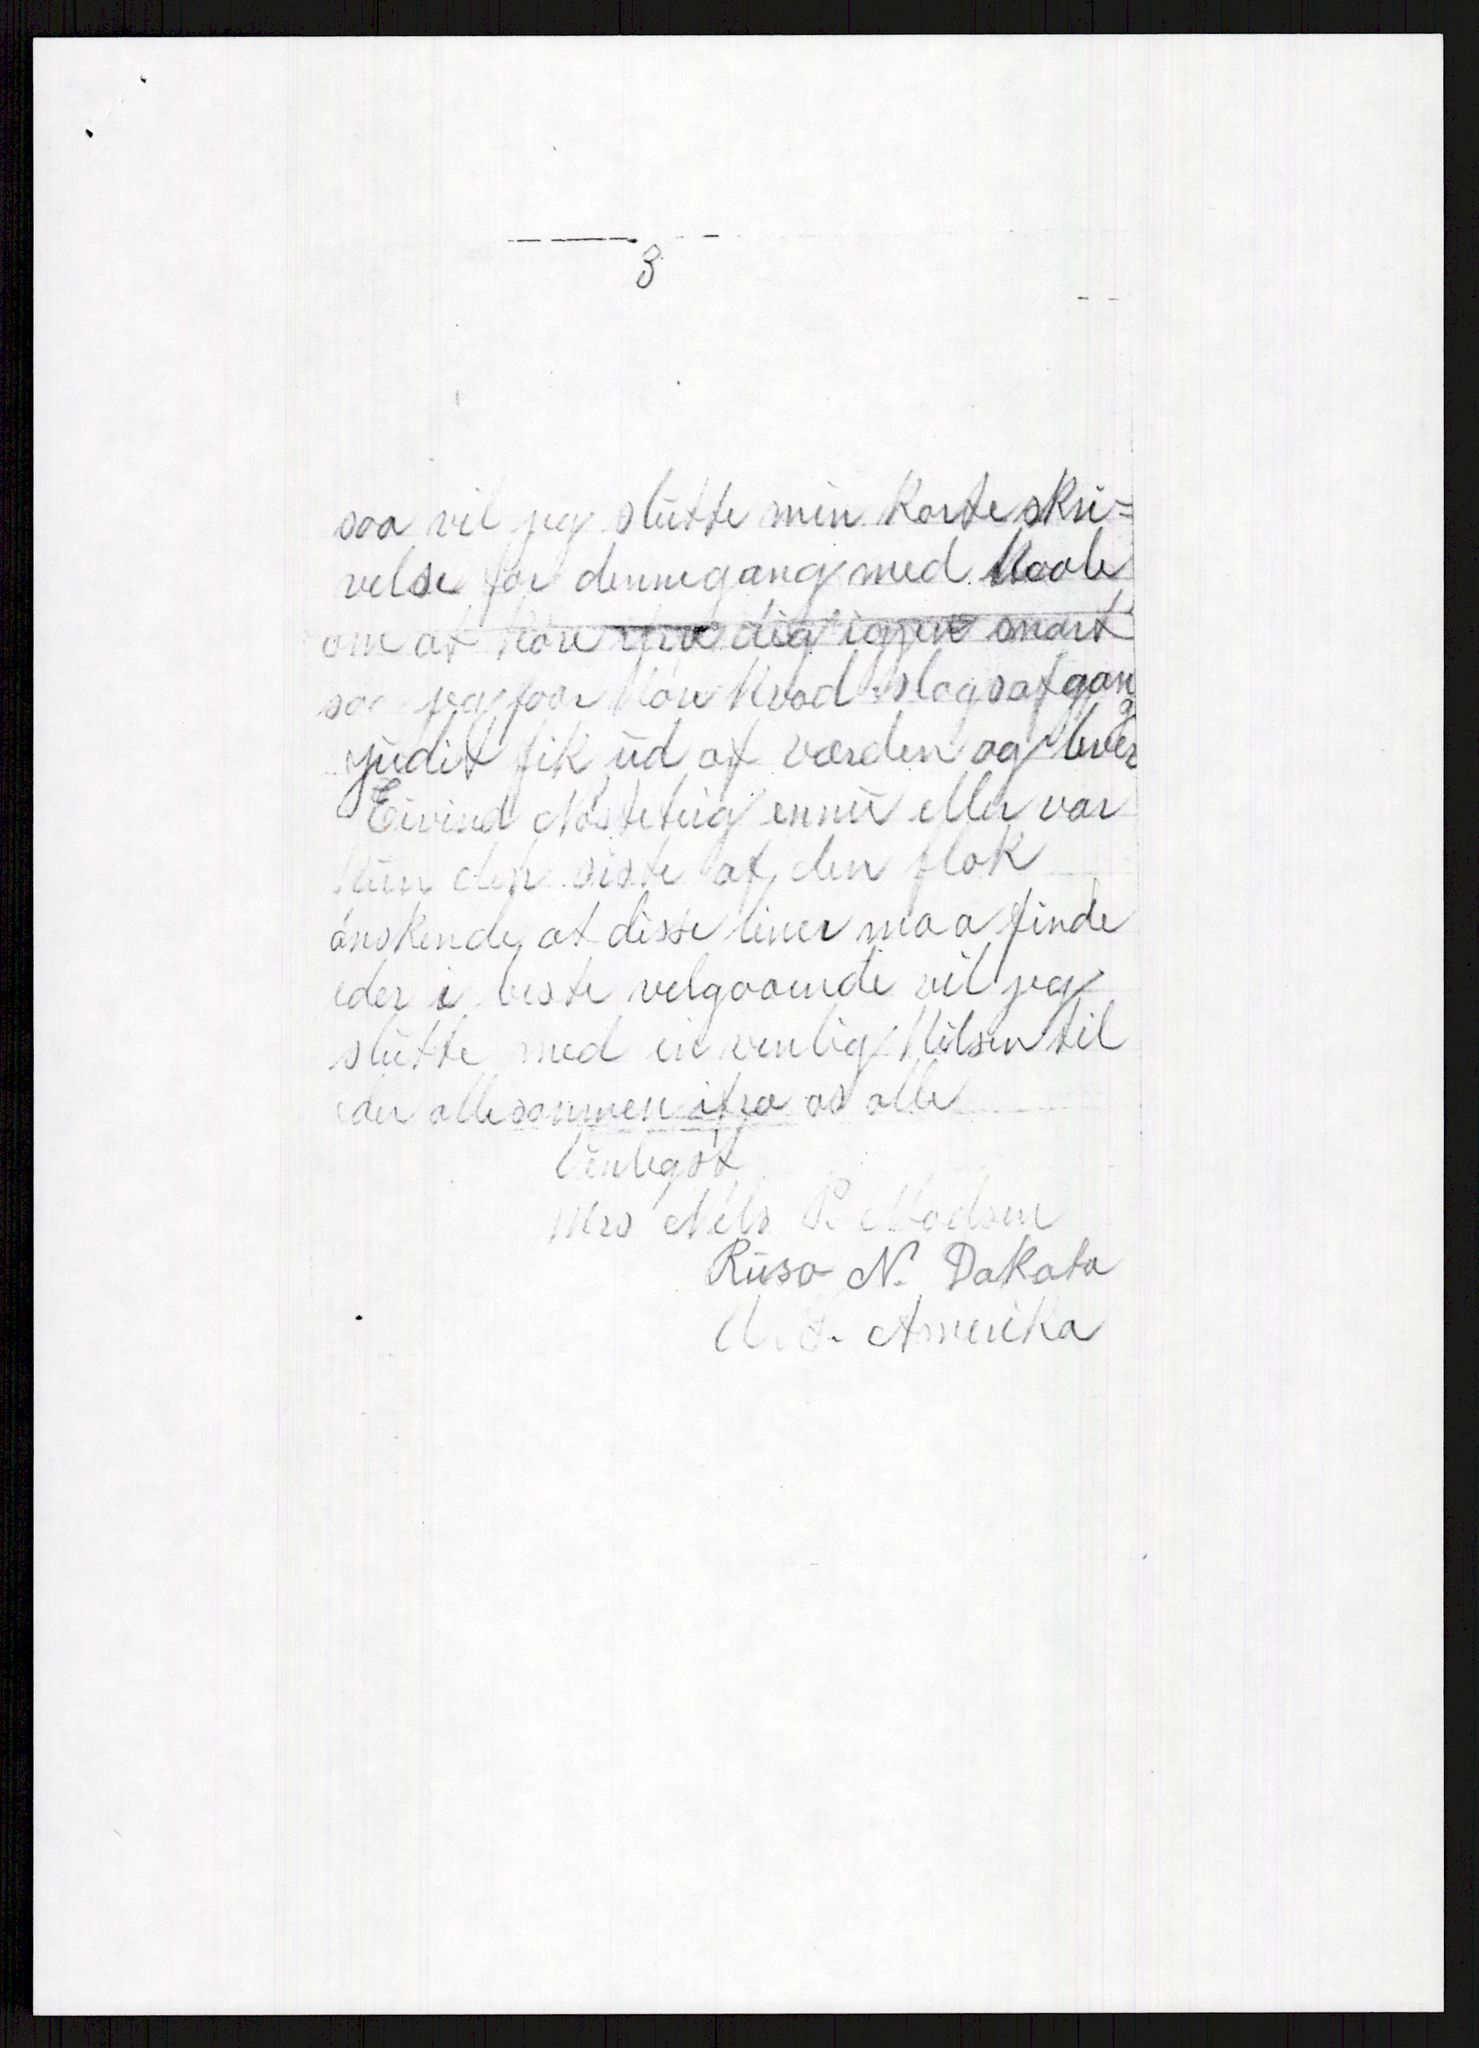 3
saa vil jeg slutte min korte skri=
velse for dennegang med Haab
om at höre fra dig igjen snart
saa jeg faar höre hvad slags afgang
judit fik ud af værden og lever
Eivind Nösteteig ennu eller var
hun den siste af den flok
önskende at disse liner maa finde
eder i beste velgaaende vil jeg
slutte med en venlig Hilsen til
eder allesammen ifra os alle
Venligst
Mrs Nels P. Madsen
Ruso N. Dakota
U. S. Amerika